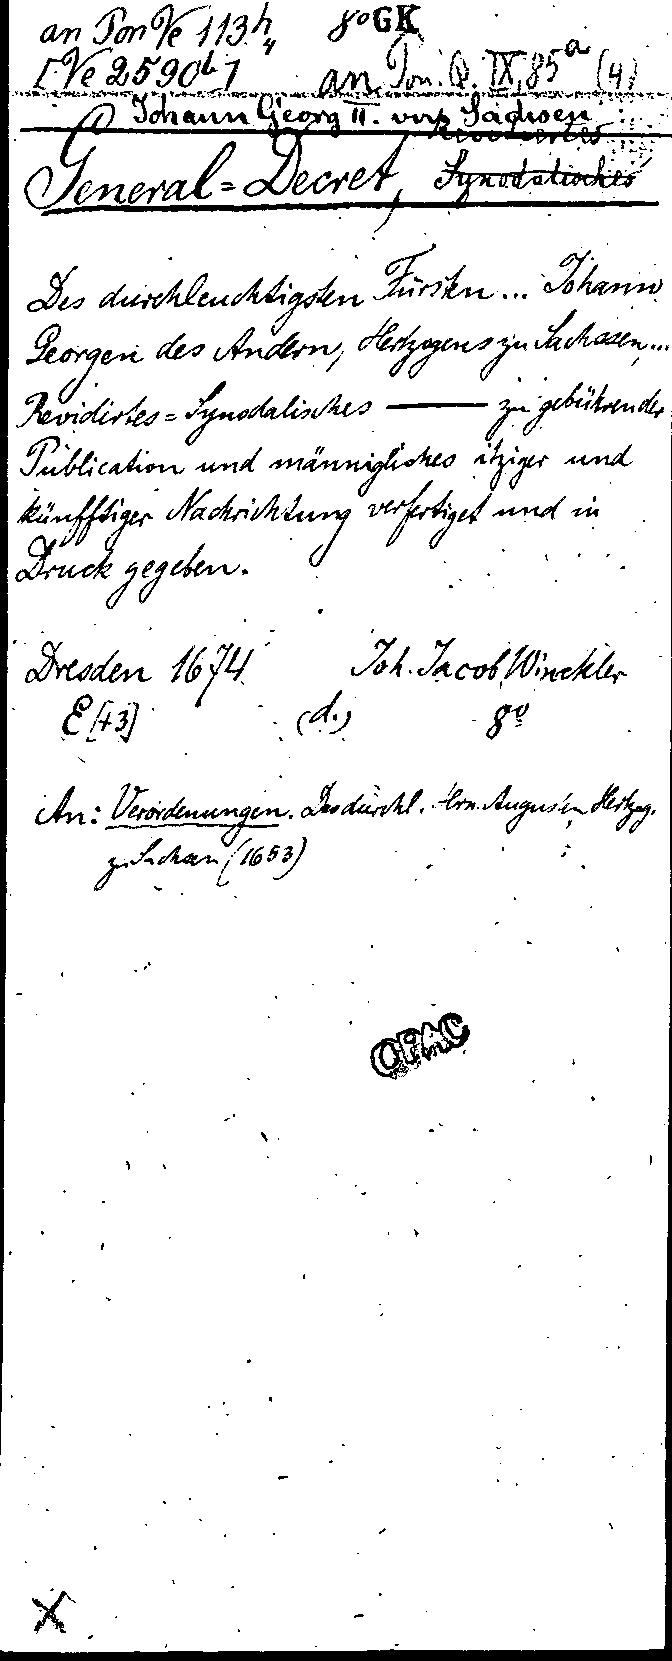 an Pon Ve 113h, 8° GK
[Ve 2590b] an Pon. Q. IX, 85a (4)
Johann Georg II. von Sachsen
Revidiertes
General=Decret, Synodalisches
Des durchleuchtigsten Fürsten... Johann
Georgen des Andern, Hertzogens zu Sachssen,...
Revidirtes=Synodalisches ——— zu gebührender
Publication und männigliches itziger und
künfftiger Nachrichtung verfertiget und in
Druck gegeben.
Dresden 1674 Joh. Jacob Winckler
E [43] (d.) 8°
An: Verordenungen. Des durchl. Hrn. Augusten Hertzog.
zu Sachsen (1653)
OPAC
X